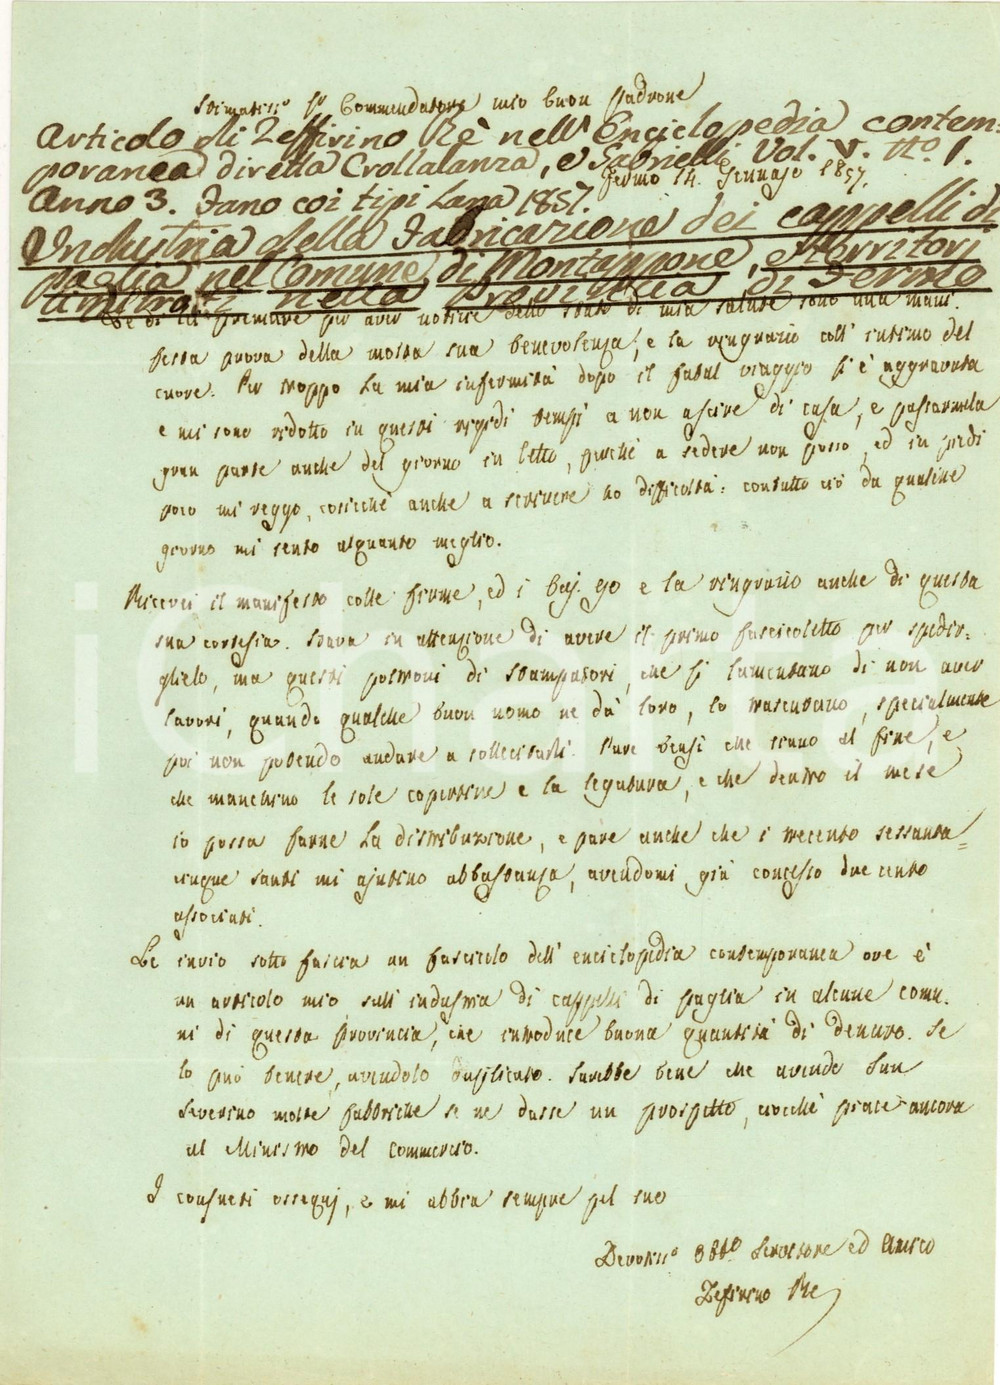 Stimatiss.º Sr Commendatore mio buon padrone
Articolo di Zeffirino Rè nell'Enciclopedia contem-
poranea diretta Crollalanza, e Gabrielli Vol. V. Nº. 1.
Fermo 14. Gennajo 1857.
Anno 3. Fano coi tipi Lana 1857.
Industria della Fabricazione dei cappelli di
paglia nel Comune di Montappone, e territori
limitrofi nella Provincia di Fermo
premure per aver notizie dello stato di mia salute sono una mani-
festa prova della molta sua benevolenza, e la ringrazio coll' intimo del
cuore. Pur troppo la mia infermità dopo il fatal viaggio si è aggravata
e mi sono ridotto in questi rigidi tempi a non uscire di casa, e passarmela
gran parte anche del giorno in letto, perchè a sedere non posso, ed in piedi
poco mi reggo, cosicchè anche a scrivere ho difficoltà: contutto ciò da qualche
giorno mi sento alquanto meglio.
Ricevei il manifesto colle firme, ed i baj. 90 e la ringrazio anche di questa
sua cortesia. Stava in attenzione di avere il primo fascicoletto per spedir-
glielo, ma questi poltroni di stampatori, che si lamentano di non aver
lavori, quando qualche buon uomo ne dà loro, lo trascurano, specialmente
poi non potendo andare a sollecitarli. Pare bensì che siano al fine, e
che manchino le sole copertine e la legatura, e che dentro il mese
io possa farne la distribuzione, e pare anche che i trecento sessanta=
cinque santi mi ajutino abbastanza, avendomi già concesso duecento
associati.
Le invio sotto fascia un fascicolo dell' enciclopedia contemporanea ove è
un articolo mio sull'industria di cappelli di paglia in alcune comu-
ni di questa Provincia, che introduce buona quantità di denaro. Se
lo può tenere, avendolo duplicato. Sarebbe bene che avendo San
Severino molte fabbriche se ne dasse un prospetto, ciocchè piace ancora
al Ministro del commercio.
I consueti ossequj, e mi abbia sempre pel suo
Devotiss.º Obbº Servitore ed Amico
Zefirino Re